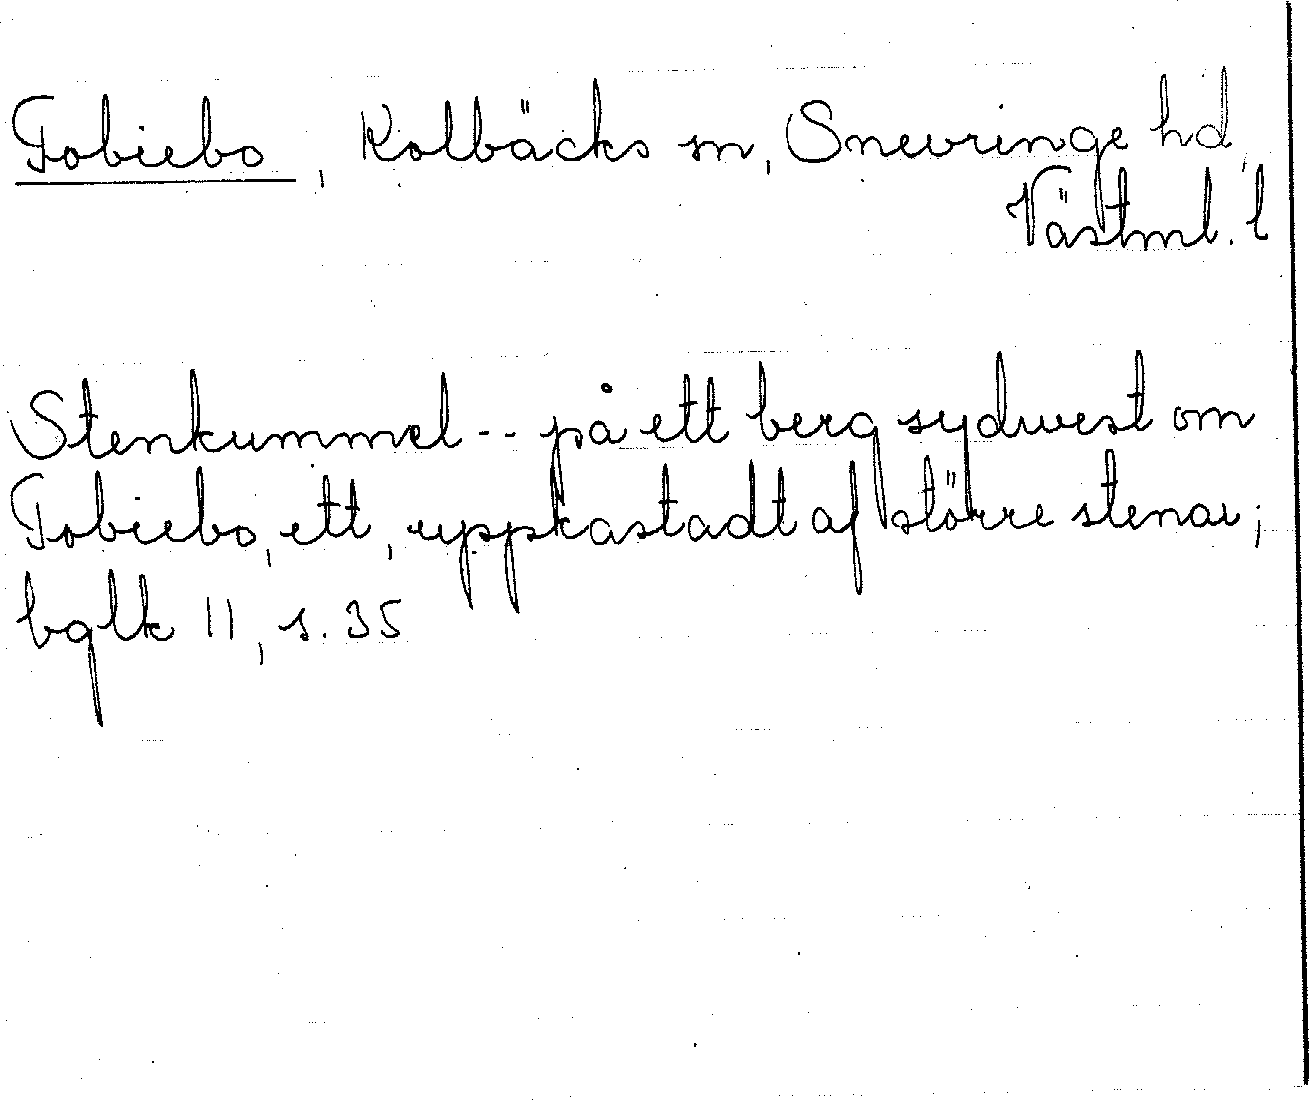 Tobiebo, Kolbäcks sn, Snevringe hd,
Västml. l
Stenkummel -- på ett berg sydwest om
Tobiebo, ett, uppkastadt af större stenar;
bglk 11, s. 35